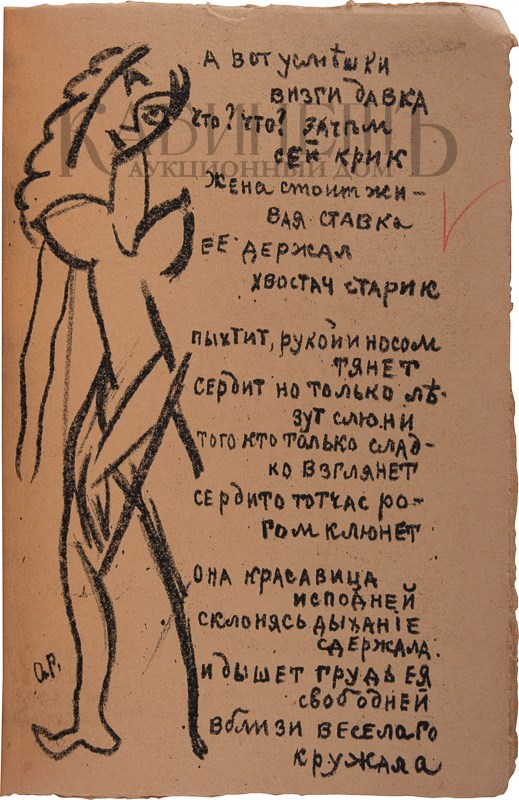 А вот усмѣшки
визги давка
что? что? зачѣм
сей крик
Жена стоит жи-
вая ставка
ЕЕ держал
хвостач старик
пыхтит, рукой и носом
тянет
сердит но только лѣ-
зут слюни
того кто только слад-
ко взглянет
сердито тотчас ро-
гом клюнет
она красавица
исподней
склонясь дыханiе
сдержала.
и дышет грудь ея
свободней
вблизи веселаго
кружала
О.Р.
КАБИНЕТЪ
АУКЦИОННЫЙ ДОМ